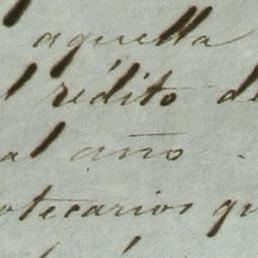 aquella
l rédito de
al año.
otecarios qu